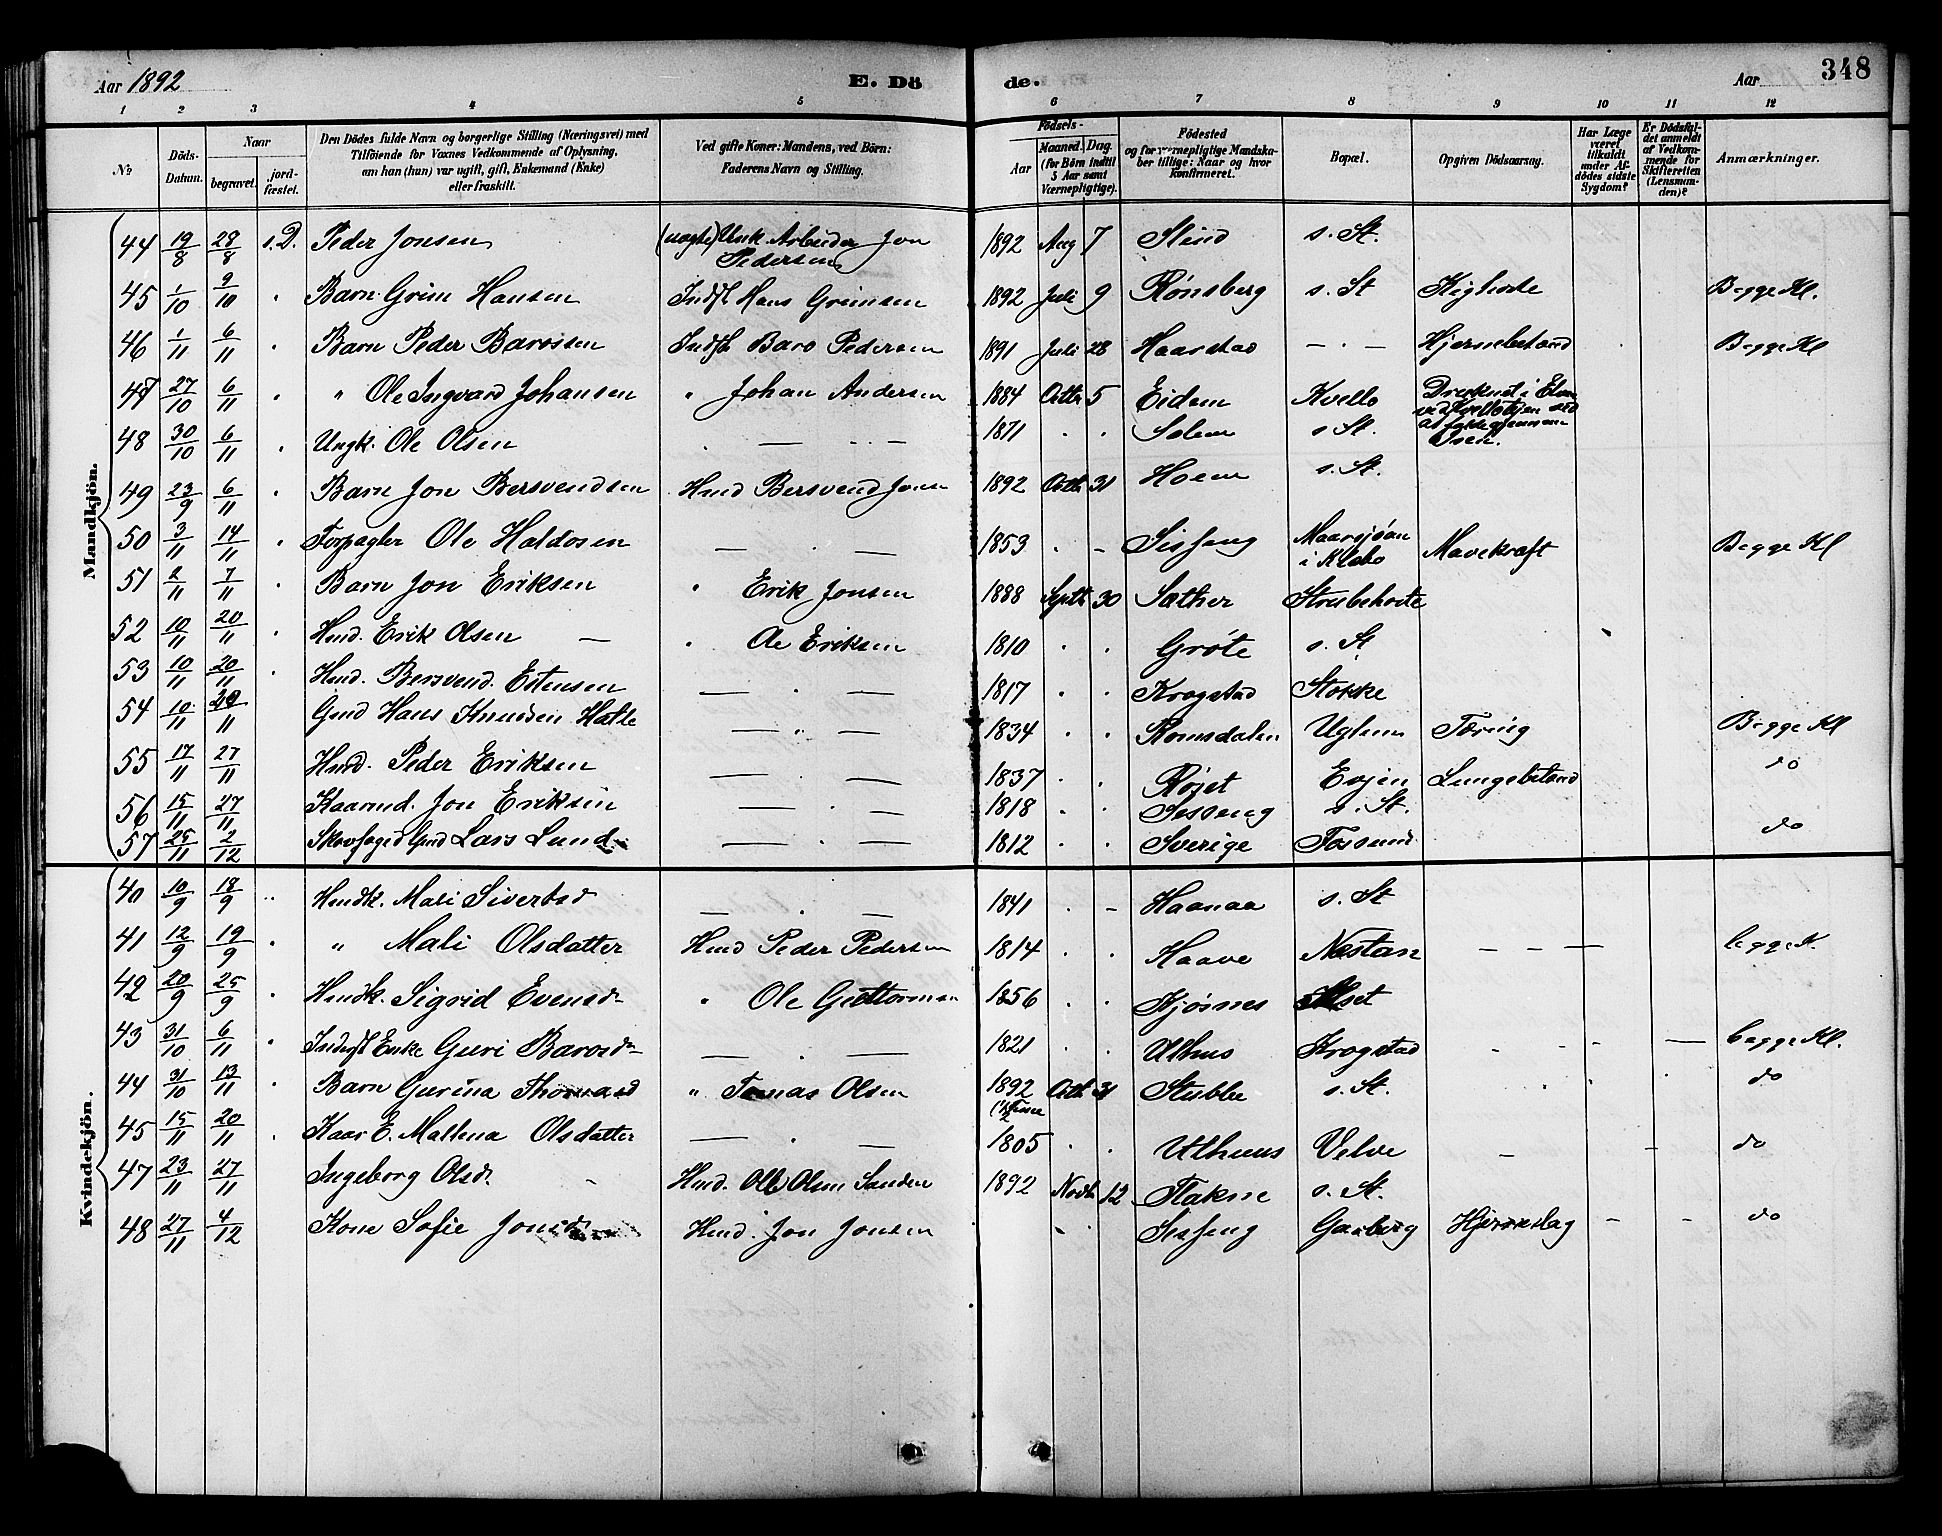 Aar 1892 E. Döde. Aar 348
1 2 3 4 5 6 7 8 9 10 11 12
No Döds-Datum. Naar begravet. jordfæstet. Den Dödes fulde Navn og borgerlige Stilling (Næringsvei) med Tilföiende for Voxnes Vedkommende af Oplysning, om han (hun) var ugift, gift, Enkemand (Enke) eller fraskilt. Ved gifte Koner: Mandens, ved Börn: Faderens Navn og Stilling. Födsels- Aar Maaned. Dag. (for Börn indtil 5 Aar samt Værnepligtige). Födested og for værnepligtige Mandskaber tillige: Naar og hvor konfirmeret. Bopæl. Opgiven Dödsaarsag. Har Læge været tilkaldt under Afdödes sidste Sygdom? Er Dödsfaldet anmeldt af Vedkommende for Skifteretten (Lensmanden)? Anmærkninger.
Mandkjön.
44 19/8 28/8 s.D. Peder Jonsen (uægte) Unk. Arbeider Jon Pedersen 1892 Aug 7 Slind s. St.
45 1/10 9/10 " Barn Grim Hansen Indst Hans Grimsen 1892 Juli 9 Rönsberg s. St Kighoste Begge Kl.
46 1/11 6/11 " Barn Peder Barossen Indst Baro Pedersen 1891 Juli 28 Haarstad — " — Hjernebetænd Begge Kl
47 27/10 6/11 " " Ole Ingvard Johansen " Johan Andersen 1884 Octb 5 Eidem Kvello Drucknet i Elven ved
48 30/10 6/11 " Ungk. Ole Olsen — — 1871 " " Solem s St. Isen.
49 23/9 6/11 " Barn Jon Bersvendsen Hmd Bersvend Jonsen 1892 Octb 31 Hoem s. St.
50 3/11 14/11 " Forpagter Ole Haldosen — " — 1853 " — Sisseng Maarsjöen i Klæbo Mavekræft Begge Kl
51 2/11 7/11 Barn Jon Eriksen " Erik Jonsen 1888 Septb 30 Sæther Strubehoste
52 10/11 20/11 " Hmd. Erik Olsen — " Ole Eriksen 1810 " " Gröte s. St
53 10/11 20/11 " Hmd. Bersvend Estensen — " — 1817 " " Krogstad Stokke
54 10/11 20/11 Gmd Hans Knudsen Halle — " — 1834 " " Romsdalen Uglem Tæring Begge Kl
55 17/11 27/11 Hmd. Peder Eriksen — — 1837 " " Röset Evjen Lungebetænd do
56 15/11 27/11 Kaarmd. Jon Eriksen — " — 1818 " " Sesseng s. St.
57 25/11 2/12 Skovfoged Gmd Lars Lund — " — 1812 " " Sverige Fossum do
Kvindekjön.
40 10/9 18/9 " Hmdk. Mali Sivertsd — " — 1841 " — Haanaa s. St
41 12/9 19/9 " " Mali Olsdatter Hmd Peder Pedersen 1814 " " Haave Nestan — — — begge K.
42 20/9 25/9 " Hmdk. Sigrid Evensd " Ole Guttormsen 1856 " " Kjösnes
43 31/10 6/11 " Inderst Enke Guri Barosd — — 1821 " " Ulhus Krogstad - - - — begge Kl.
44 31/10 13/11 Barn Gurina " Tomas Olsen 1892 Octb 31 Stubbe s. St. do
45 15/11 20/11 " Kaar E. Mallena Olsdatter — " — 1805 " " Ulhuus Velve - - do
47 23/11 27/11 Ingeborg Olsd. - Hmd. Ole Olsen Sanden 1892 Novb 12 Flakne s. St.
48 27/11 4/12 Kone Sofie Jonsd Hmd. Jon Jonsen " Sesseng Gaaberg Hjerneslag - - do